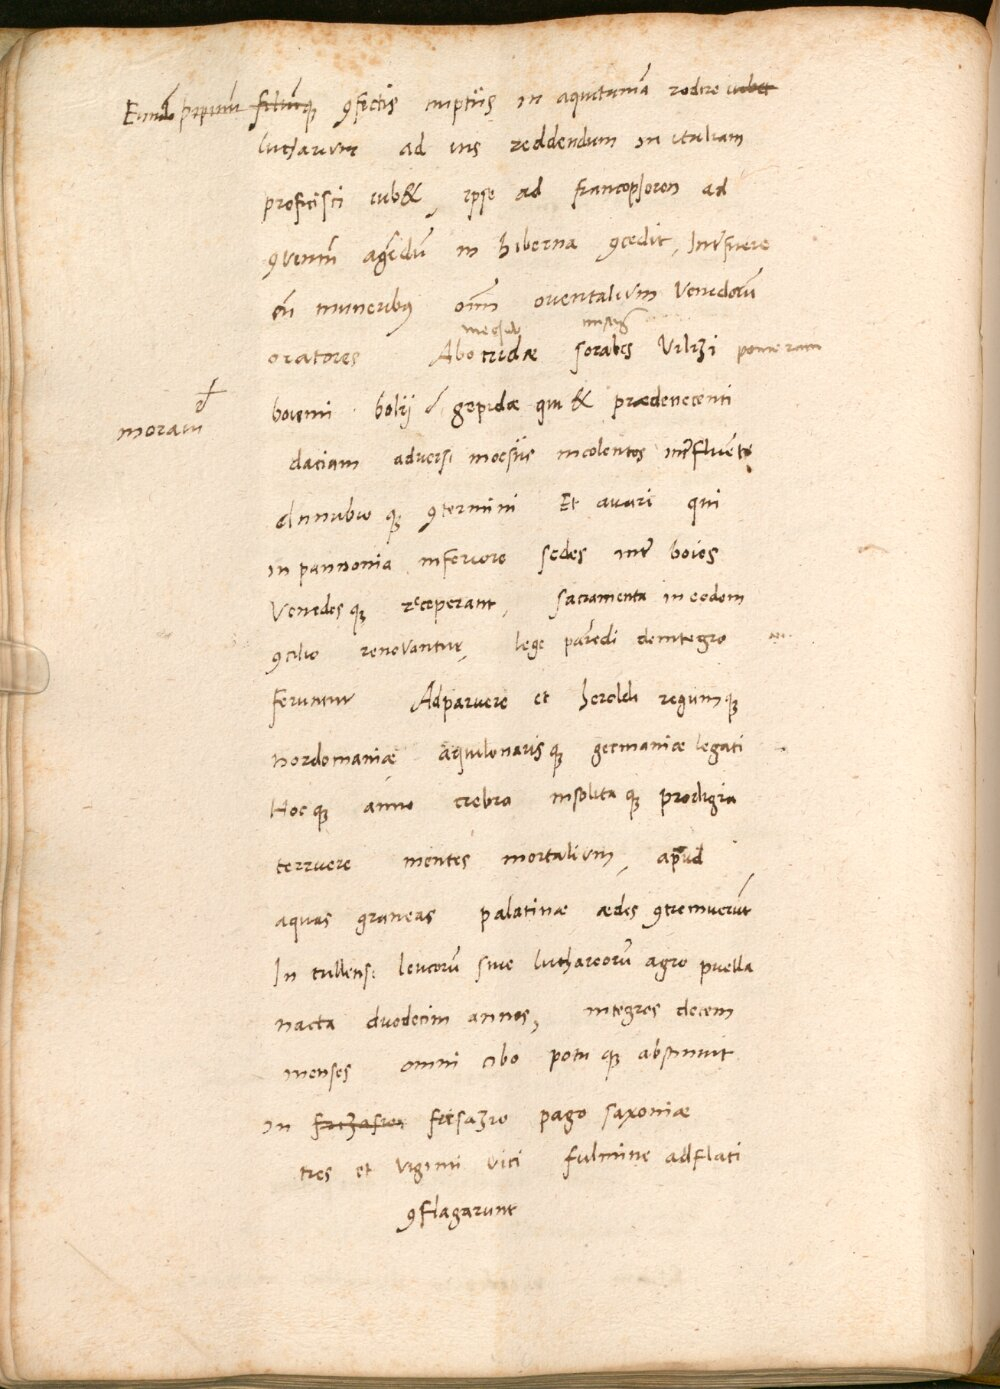 Eundē pipinū filiūq̨ ꝯfectis nuptiis in aquitaniā redire iubet
lutharium ad ius reddendum in italiam
proficisci iub&, ipse ad francophoron ad
ꝯuentū agēdū in hiberna ꝯcedit, Inťfuere
cū muneribus oīm orientalium Venedorū
meckel misn
oratores Abotridæ sorabes Vilzi pomeram
moraui
boiemi bolij gepidæ qui & prædenecenti
daciam aduersi moesiis incolentes inťfluente
dannubio q̨ ꝯtermini Et auari qui
in pannonia inferiore sedes inť boios
Venedesq̨ receperant, sacramenta in eodem
ꝯcilio renouantur, lege parēdi deintegro
feruntur Adparuere et heroldi regumq̨
nordomaniæ aquilonarisq̨ germaniæ legati
Hocq̨ anno crebra insolitaq̨ prodigia
terruere mentes mortalium, apud
aquas graneas palatinæ ædes ꝯtremuerūt
In tullensi leucorū siue luthareorū agro puella
nacta duodecim annos, integros decem
menses omni cibo potuq̨ abstinuit
in frisazio pago saxoniæ
tres et viginti vici fulmine adflati
ꝯflagarunt